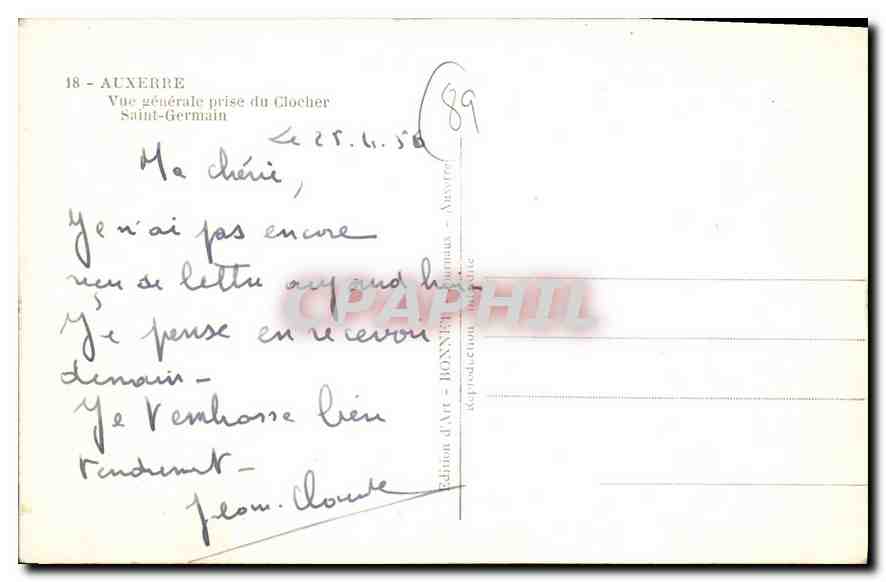 18 - AUXERRE
Vue générale prise du Clocher
Saint-Germain
89
Le 25.4.56
Ma chérie,
Je n'ai pas encore
reçu de lettre aujourd'hui -
Je pense en recevoir
demain -
Je t'embrasse bien
tendrement -
Jean-Claude
Edition d'Art - BONNET Journaux - Auxerre
Reproduction interdite
CPAPHIL